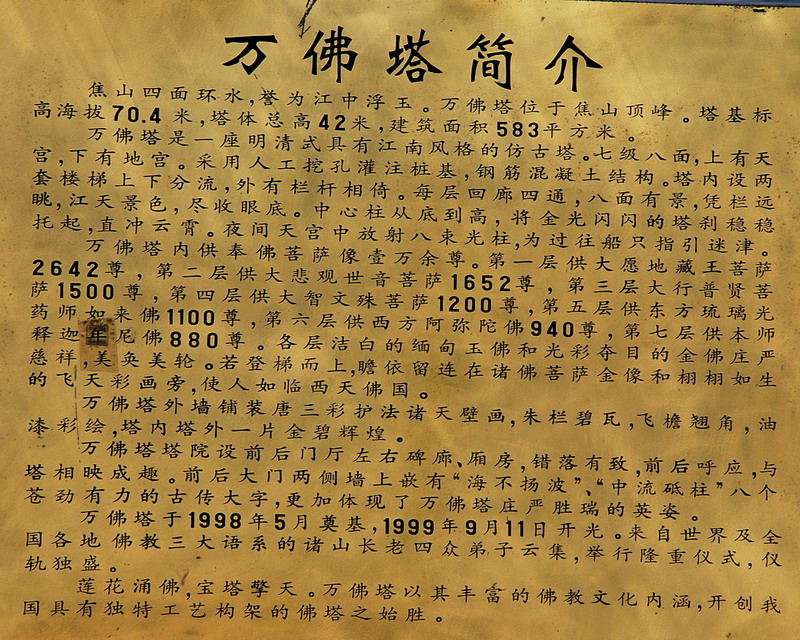 万佛塔简介
焦山四面环水,誉为江中浮玉。万佛塔位于焦山顶峰。塔基标
高海拔70.4米,塔体总高42米,建筑面积583平方米。
万佛塔是一座明清式具有江南风格的仿古塔。七级八面,上有天
宫,下有地宫。采用人工挖孔灌注桩基,钢筋混凝土结构。塔内设两
套楼梯上下分流,外有栏杆相倚。每层回廊四通,八面有景,凭栏远
眺,江天景色,尽收眼底。中心柱从底到高,将金光闪闪的塔刹稳稳
托起,直冲云霄。夜间天宫中放射八束光柱,为过往船只指引迷津。
万佛塔内供奉佛菩萨像壹万余尊。第一层供大愿地藏王菩萨
2642尊,第二层供大悲观世音菩萨1652尊,第三层大行普贤菩
萨1500尊,第四层供大智文殊菩萨1200尊,第五层供东方琉璃光
药师如来佛1100尊,第六层供西方阿弥陀佛940尊,第七层供本师
释迦年尼佛880尊。各层洁白的缅甸玉佛和光彩夺目的金佛庄严
慈祥,美奂美轮。若登梯而上,瞻依留连在诸佛菩萨金像和栩栩如生
的飞天彩画旁,使人如临西天佛国。
万佛塔外墙铺装唐三彩护法诸天壁画,朱栏碧瓦,飞檐翘角,油
漆彩绘,塔内塔外一片金碧辉煌。
万佛塔塔院设前后门厅左右碑廊、厢房,错落有致,前后呼应,与
塔相映成趣。前后大门两侧墙上嵌有“海不扬波”、“中流砥柱”八个
苍劲有力的古传大字,更加体现了万佛塔庄严胜瑞的英姿。
万佛塔于1998年5月奠基,1999年9月11日开光。来自世界及全
国各地佛教三大语系的诸山长老四众弟子云集,举行隆重仪式,仪
轨独盛。
莲花涌佛,宝塔擎天。万佛塔以其丰富的佛教文化内涵,开创我
国具有独特工艺构架的佛塔之始胜。